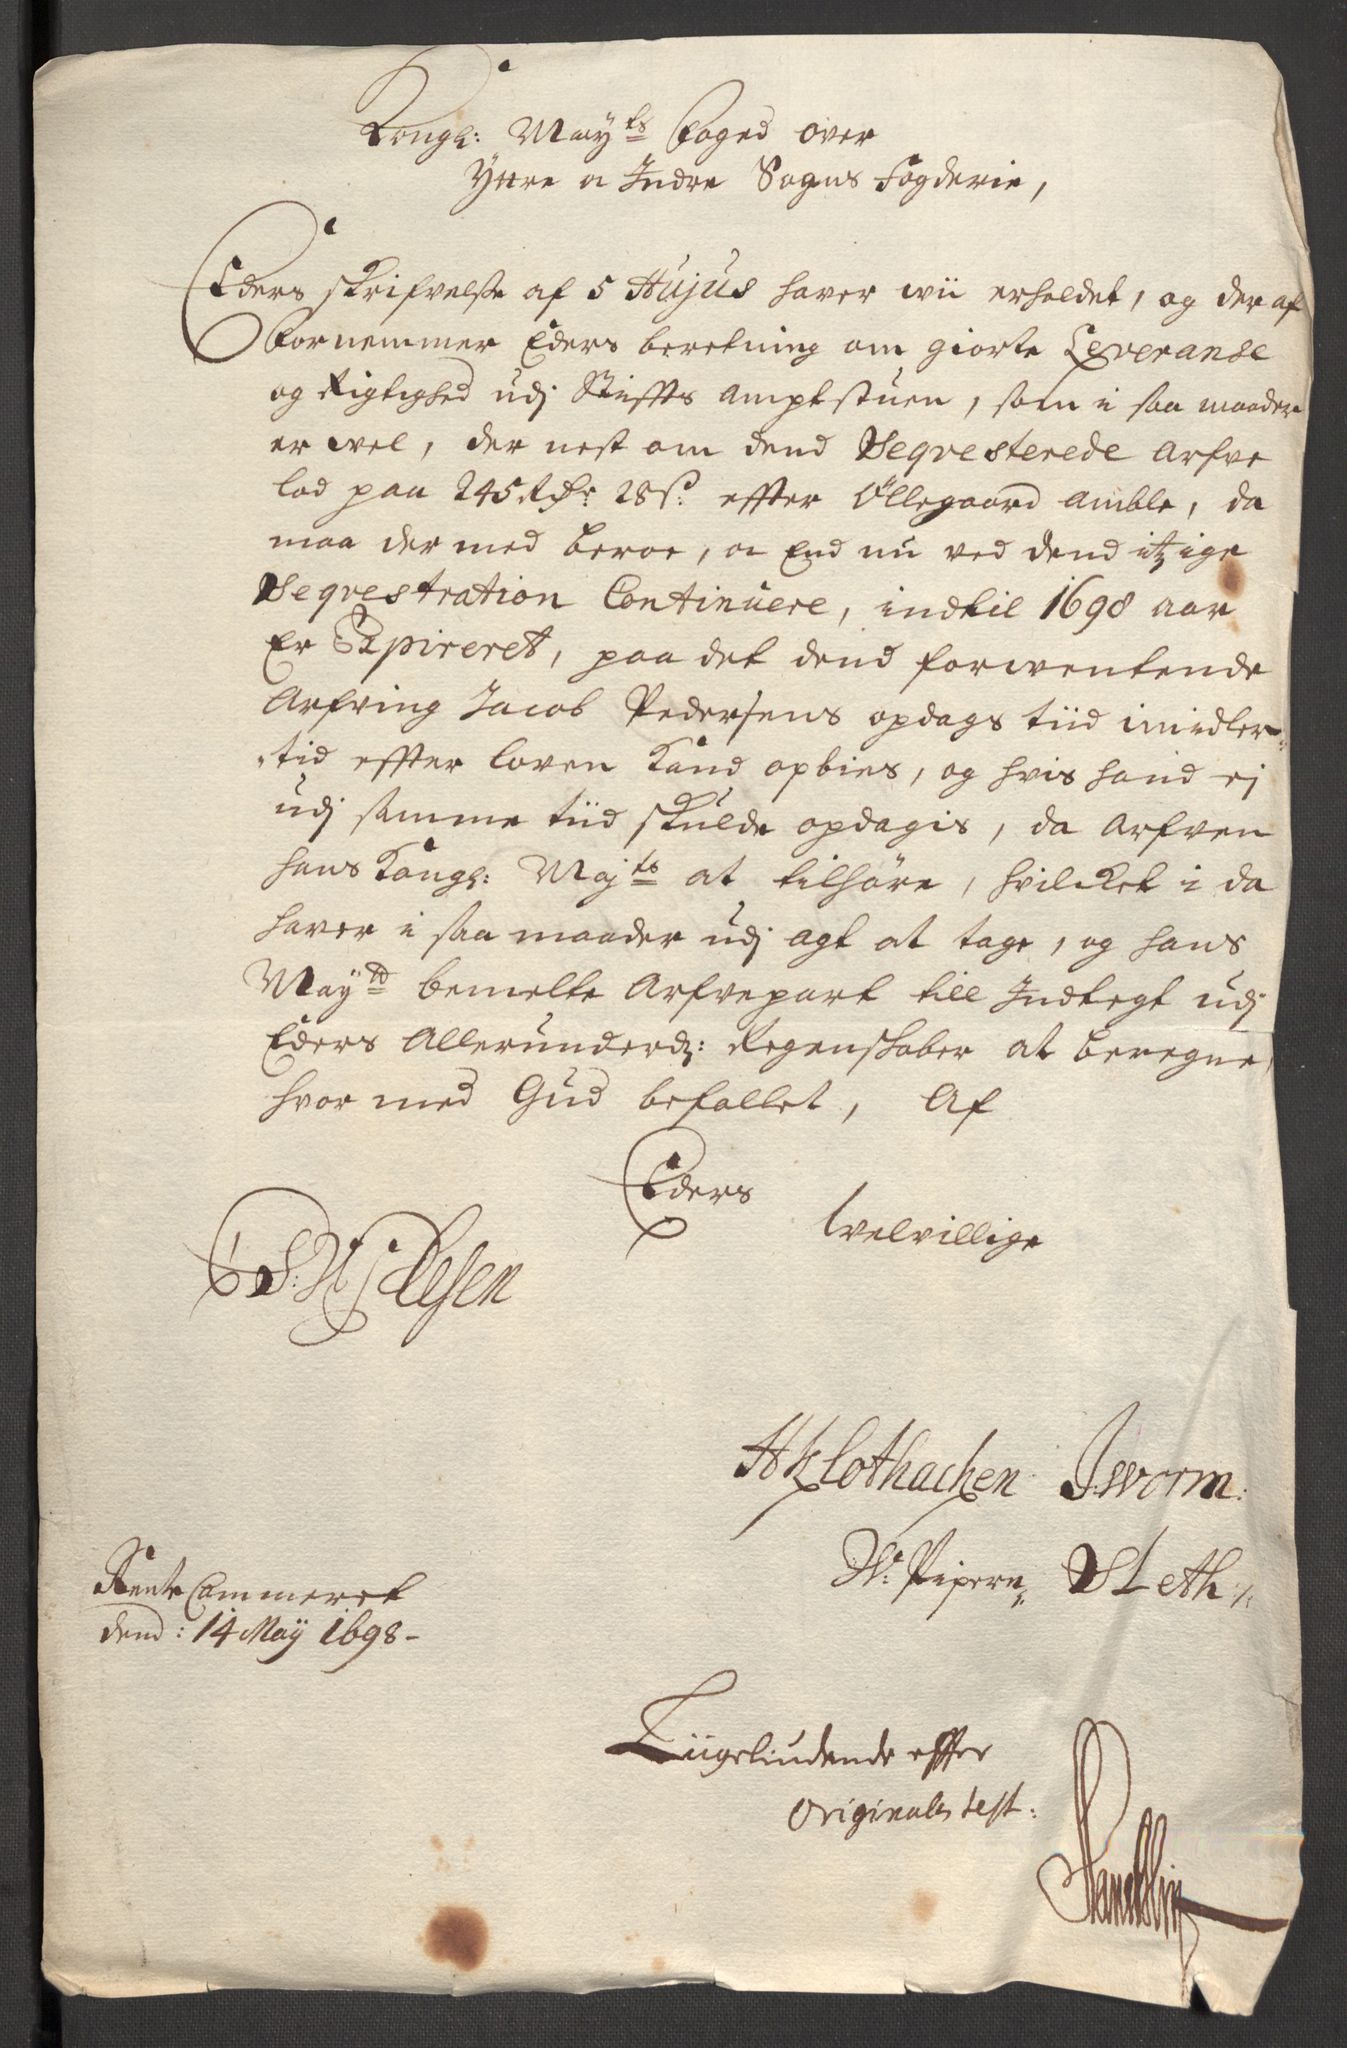 Kongl: Mayts Foged over
Yttre oc Indre Sogns Fogderie,
Eders skrifvelse af 5 Hujus hafver wii erholdet, og der af
fornemmer Eders beretning om giorte Leveranse
og Rigtighed udj Stiffts Amptstuen, som i saa maader
er vel, der nest om dend Seqvesterede Arfve
lod paa 245 Rdr 28 s: effter Ollegaard Amble, da
maa der med beroe, oc End nu ved dend itzige
Seqvestration Continuere, indtil 1698 aar
Er Expireret, paa det dend forwentende
Arfving Jacob Pedersens opdags tiid imidler-
tid effter loven Kand opbies, og hvis hand ej
udj samme tiid skulde opdagis, da Arfven
hans Kongl: Majts at tilhøre, hvilcket i da
hafver i saa maader udj agt at tage, og hans
Maytd bemelte Arfvepart till Indtegt udj
Eders Allerunderd: Regenskaber at beregne,
hvor med Gud befallet, Af
Eders
Welvillige
HKlothacken J: Worm:
W: Pipern S Leth
Rente Cammeret
dend: 14 May 1698-
Liigelindende effter
Originalen test: